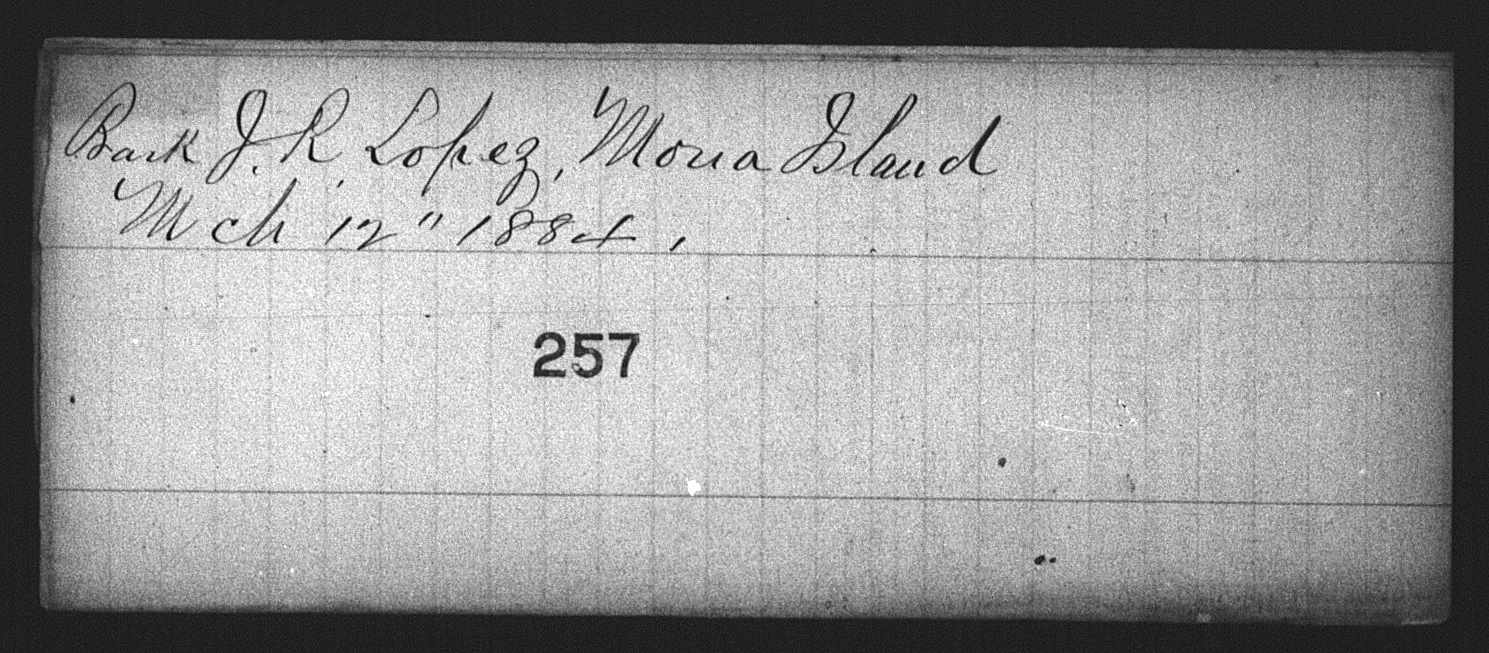 Bark J. R. Lopez, Mona Island
Mch 12" 1884,
257